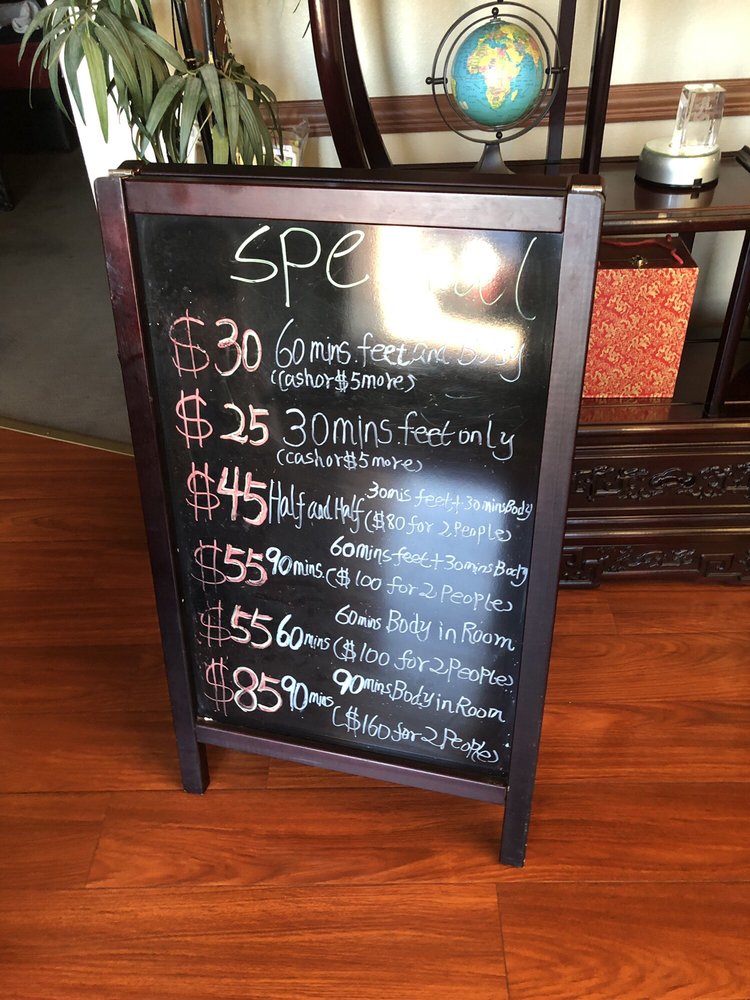 special
$30 60 mins. feet and Body
(cash or $5 more)
$25 30 mins. feet only
(cash or $5 more)
$45 Half and Half 30 mis feet + 30 mins Body
($80 for 2 People)
$55 90 mins. 60 mins feet + 30 mins Body
($100 for 2 People)
$55 60 mins 60 mins Body in Room
($100 for 2 People)
$85 90 mins 90 mins Body in Room
($160 for 2 People)